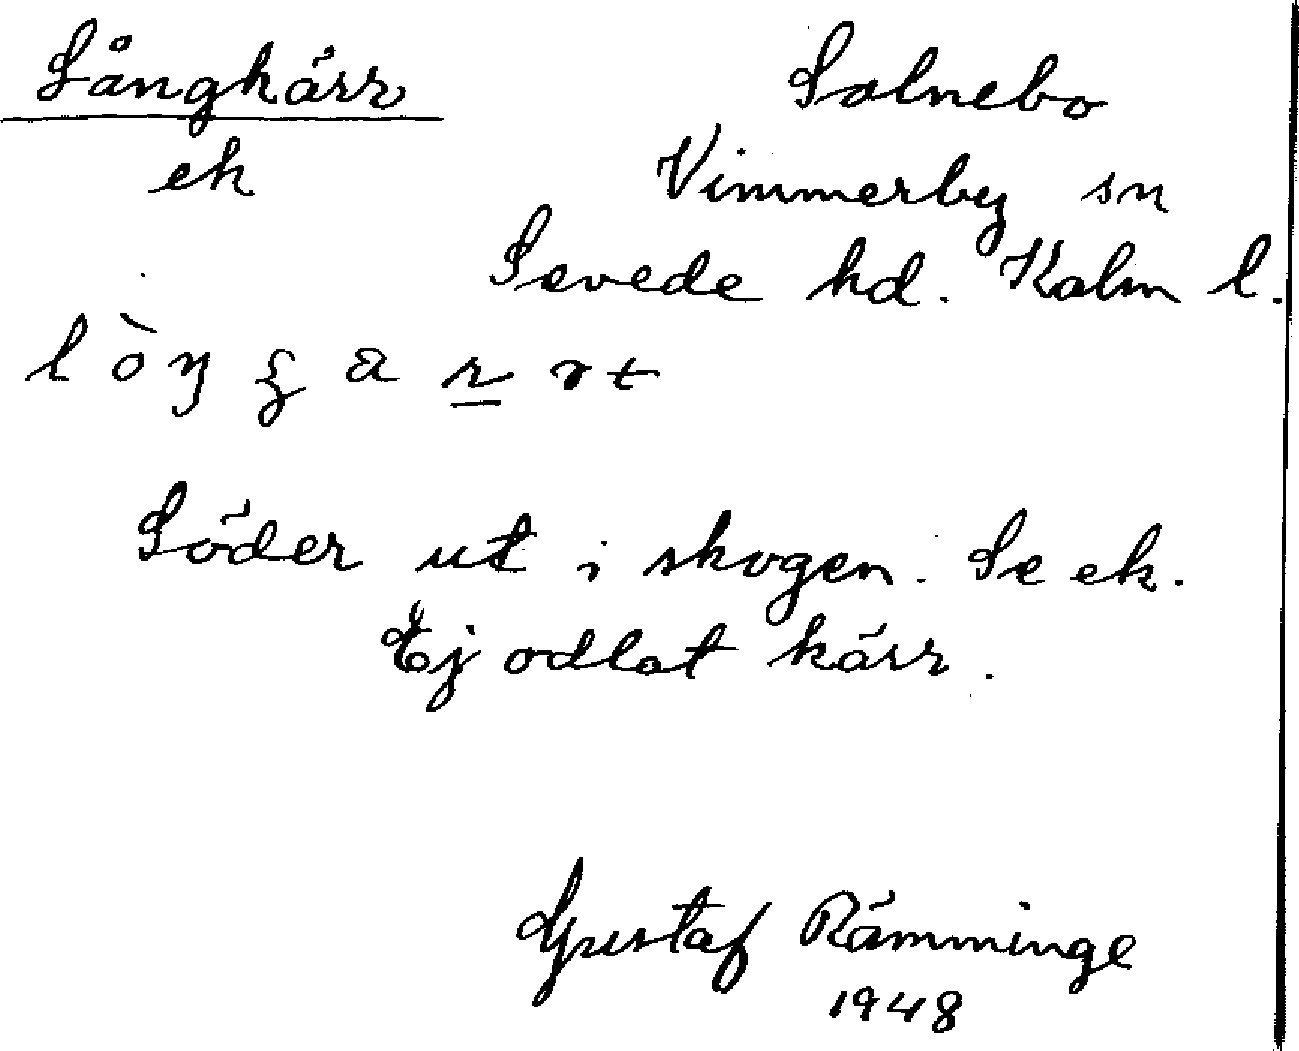 Långkärr
Solnebo
ek
Vimmerby sn
Sevede hd. Kalm l.
Söder ut i skogen. Se ek.
Ej odlat kärr.
Gustaf Rämminge
1948